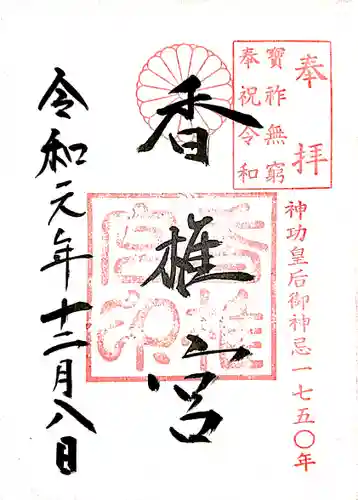 奉拝
寳祚無窮
奉祝令和
神功皇后御神忌一七五〇年
香椎宮
令和元年十二月八日